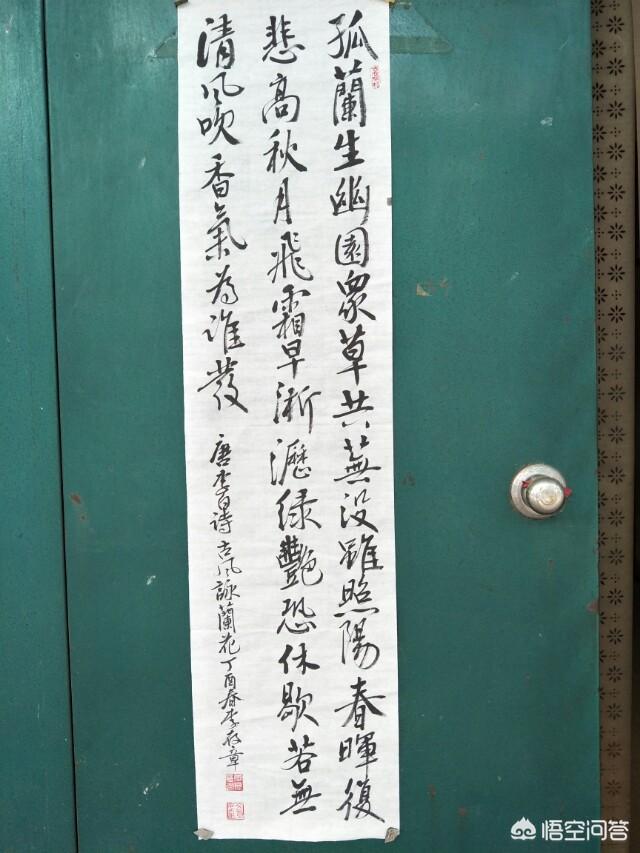 孤蘭生幽園眾草共蕪没雖照陽春暉復
悲高秋月飛霜早淅瀝绿艷恐休歇若無
清风吹香氣為誰發
唐李白詩古风詠蘭花丁酉春李存章
悟空问答